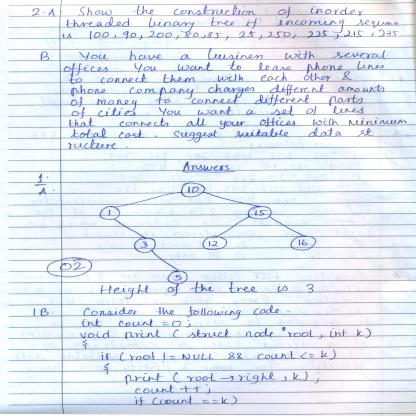 2.A Show the construction of inorder
threaded binary tree if incoming sequence
is 100, 90, 200, 80, 85, 95, 250, 225, 215, 235.
B. You have a business with several
offices. You want to lease phone lines
to connect them with each other &
phone company charges different amounts
of money to connect different parts
of cities. You want a set of lines
that connects all your offices with minimum
total cost. Suggest suitable data st
ructure
Answers
1.
A.
10
1 15
3 12 16
02 5
Height of the tree is 3
1B. Consider the following code.
int count = 0;
void print ( struct node *root, int k)
{
if (root != NULL && count <= k)
{
print ( root → right , k) ;
count ++ ;
if (count == k)